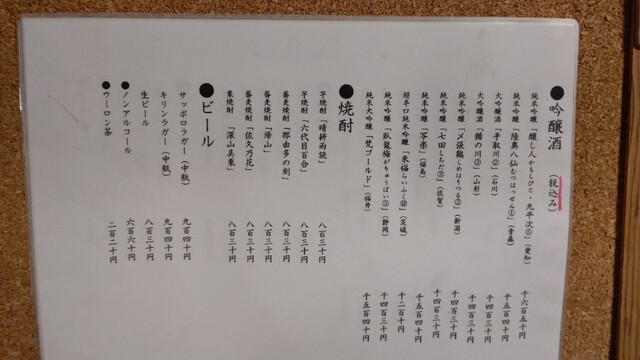 ●吟醸酒 (税込み)
純米吟醸「醸し人かもしびと・九平次⑤」(愛知) 千六百五十円
純米吟醸「陸奥八仙むつはっせん①」(青森) 千五百四十円
大吟醸酒「手取川②」(石川) 千四百三十円
大吟醸酒「楯の川③」(山形) 千四百三十円
純米吟醸「〆張鶴しめはりつる③」(新潟) 千四百三十円
純米吟醸「七田しちだ③」(佐賀) 千四百三十円
純米吟醸「写楽」(福島) 千五百四十円
超辛口純米吟醸「来福らいふく⑩」(茨城) 千二百十円
純米吟醸「臥龍梅がりゅうばい③」(静岡) 千四百三十円
純米大吟醸「梵ゴールド」(福井) 千五百四十円
●焼酎
芋焼酎「晴耕雨読」 八百三十円
芋焼酎「六代目百合」 八百三十円
蕎麦焼酎「那由多の刻」 八百三十円
蕎麦焼酎「帰山」 八百三十円
蕎麦焼酎「佐久乃花」 八百三十円
栗焼酎「深山美栗」 八百三十円
●ビール
サッポロラガー(中瓶) 九百四十円
キリンラガー(中瓶) 九百四十円
生ビール 八百三十円
●ノンアルコール 六百六十円
●ウーロン茶 二百二十円